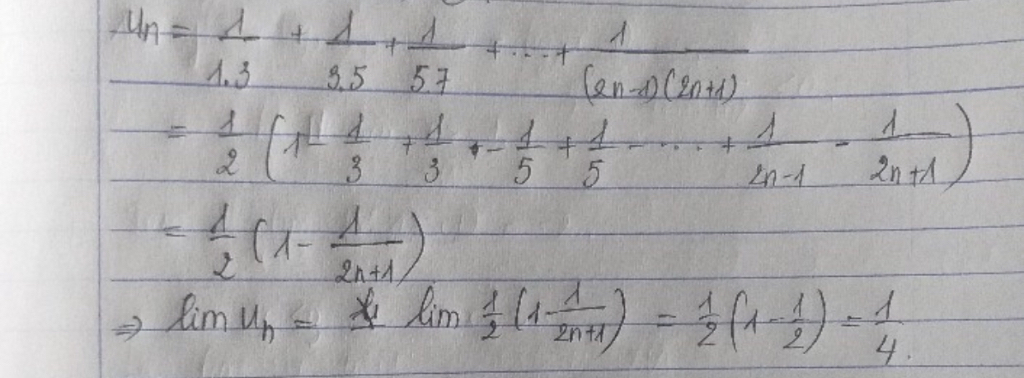 Un = 1/1.3 + 1/3.5 + 1/57 + ... + 1/(2n-1)(2n+1)
= 1/2 (1 - 1/3 + 1/3 - 1/5 + 1/5 - .... + 1/2n-1 - 1/2n+1)
= 1/2 (1 - 1/2n+1)
⇒ lim Un = lim 1/2 (1 - 1/2n+1) = 1/2 (1 - 1/2) = 1/4.